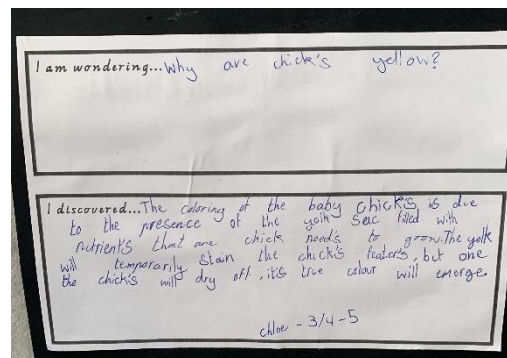 I am wondering...Why are chick's yellow?
I discovered...The coloring of the baby chick's is due
to the presence of the yolk sac filled with
nutrient's that are chick need's to grow.The yolk
will temporarily stain the chick's feater's, but one
the chick's will dry off, it's true colour will emerge
chloe - 3/4-5